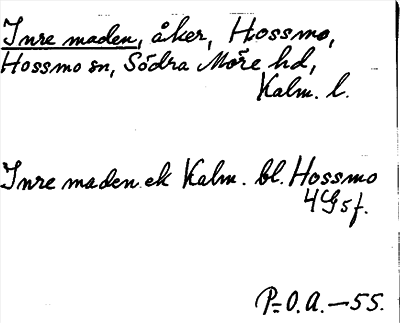 Inre maden, åker, Hossmo,
Hossmo sn, Södra Möre hd,
Kalm. l.
Inre maden ek Kalm. bl. Hossmo
4G5f.
P=O.A.—55.